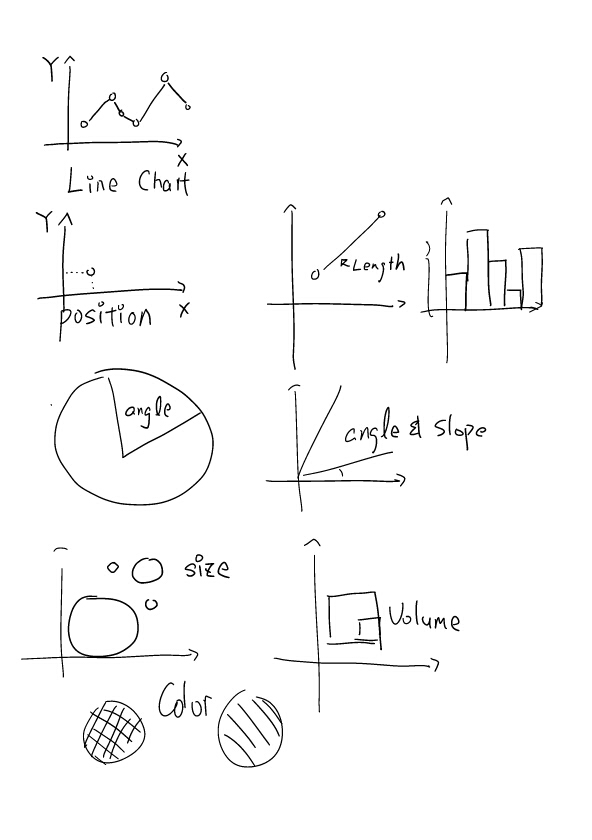 Y
X
Line Chart
Y
position X
Length
angle
angle & Slope
size
Volume
Color